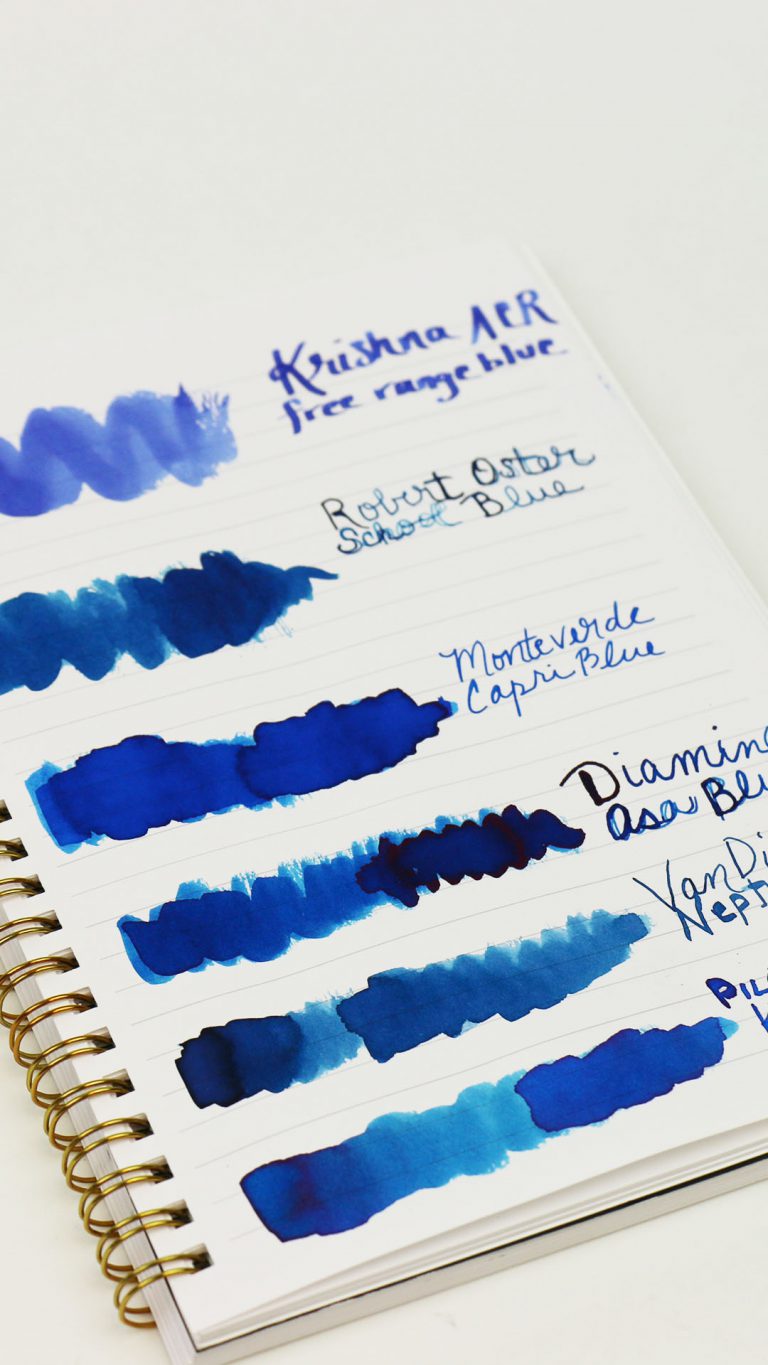 Krishna AER
free range blue
Robert Oster
School Blue
Monteverde
Capri Blue
Diamine
Asa Blu
Van Di
Nept
PIL